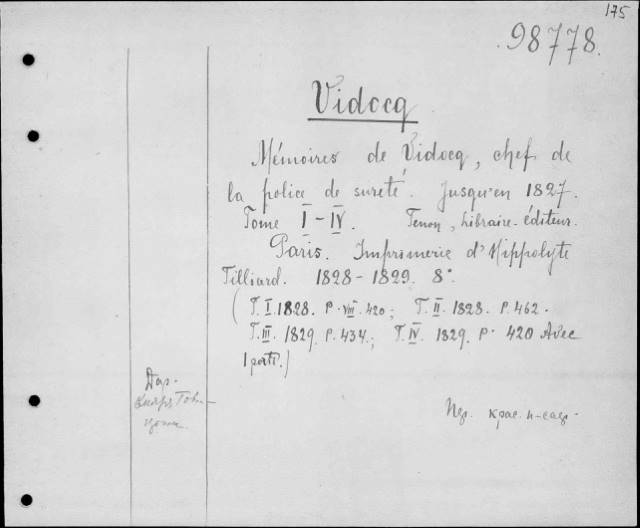 175
98778.
Vidocq
Mémoires de Vidocq, chef de
la police de sureté. Jusqu'en 1827.
Tome I-IV. Tenon, Libraire-éditeur.
Paris. Imprimerie d'Hippolyte
Tilliard. 1828-1829. 8°.
(T.I.1828. P. VIII. 420; T.II. 1828. P. 462.
T.III. 1829. P. 434.; T.IV. 1829. P. 420 Avec
1 portr.)
Дар.
Пер. крас.